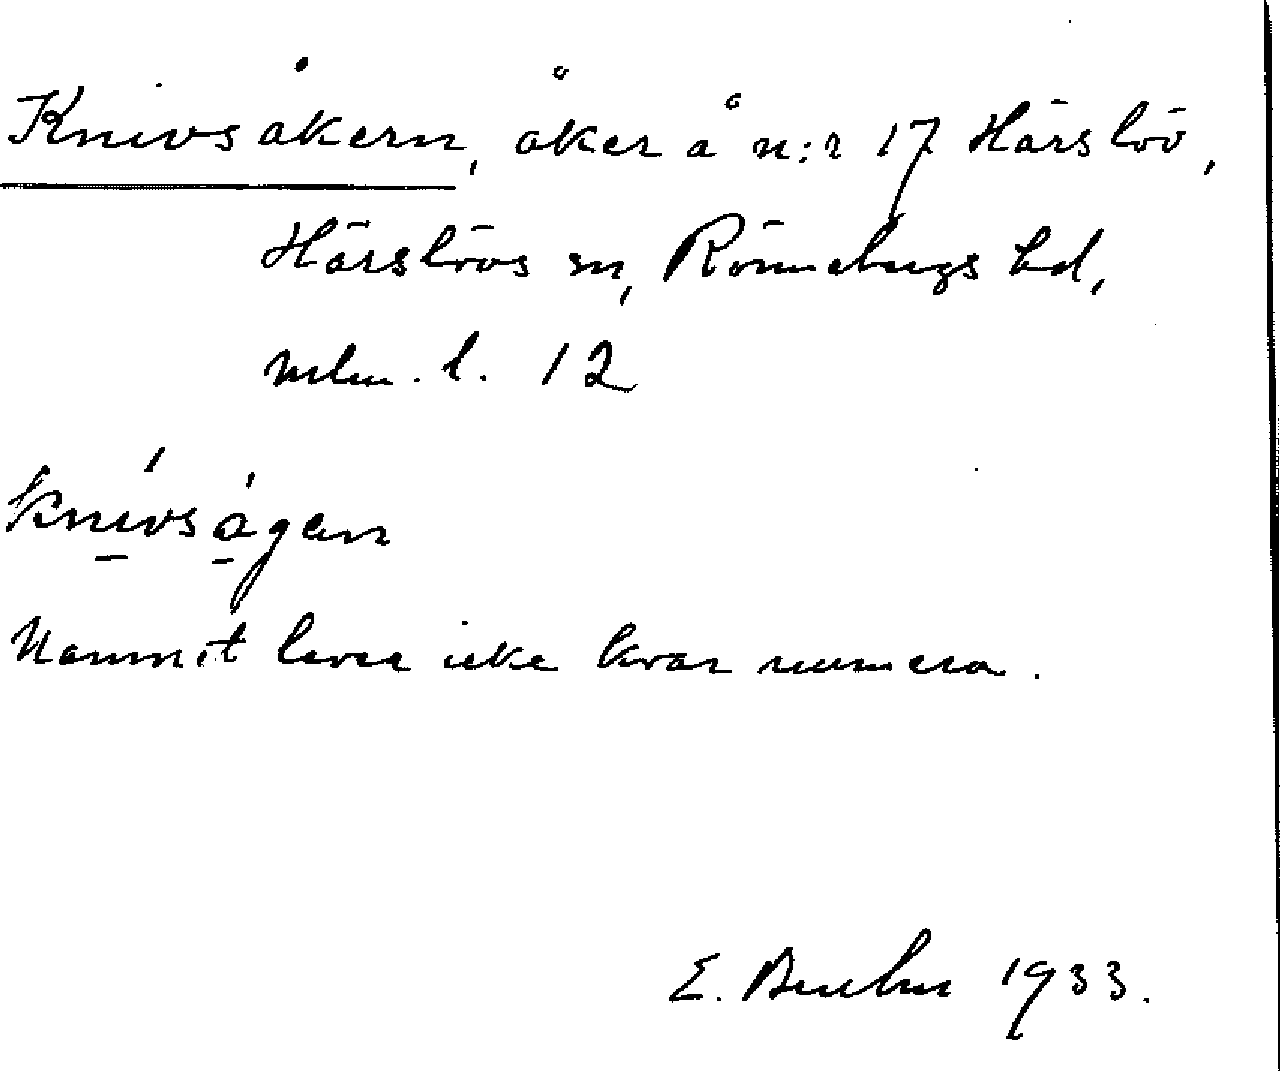 Knivsåkern, åker å n:r 17 Härslöv,
Härslövs sn, Rönnebergs hd,
mlm. l. 12
knívságen
Namnet lever icke kvar numera.
E. 1933.